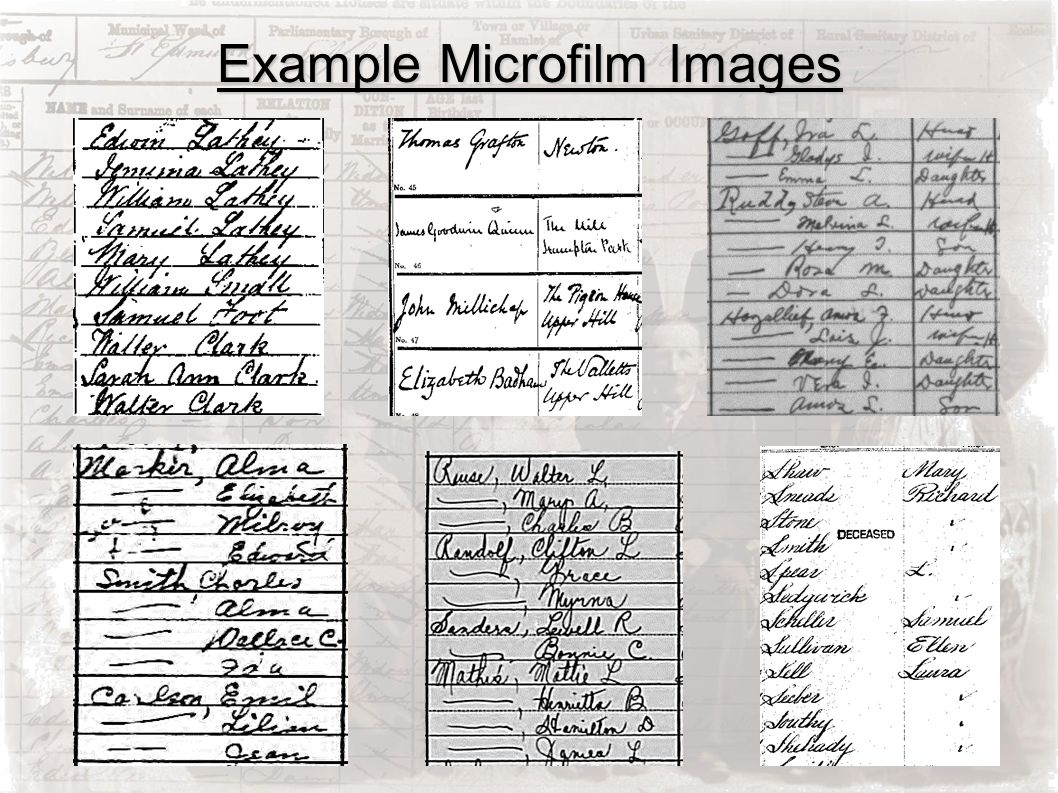 Example Microfilm Images
Edwin Lathey
Jemima Lathey
William Lathey
Samuel Lathey
Mary Lathey
William Small
Samuel Foot
Walter Clark
Sarah Ann Clark
Walter Clark
Thomas Grafton Newton.
No. 45
James Goodwin Quinn The Mill
Park
No. 46
John Millichap The Pigeon House
Upper Hill
No. 47
Elizabeth Badham The Valletts
Upper Hill
Goff, Ira L. Head
Gladys I. wife H
Emma L. Daughter
Ruddy, Steve A. Head
Melvina L. wife H
Henry J. Son
Rosa M. Daughter
Dora L. Daughter
Amos Z. Head
Lois J. wife H
Mary E. Daughter
Vera I. Daughter
Amos L. Son
Marker, Alma
Elizabeth
Milroy
Edward
Smith, Charles
Alma
Wallace C.
Ida
Carlson, Emil
Lilian
Jean
Rouse, Walter L.
Mary A.
Charlie B
Randolf, Clifton L
Grace
Myrna
Sanders, Lewell R
Bonnie C.
Mathis, Mattie L
Henrietta B
Hamilton D
Agnes L
Shaw Mary
Sneads Richard
Stone
DECEASED
Smith
Spear L.
Sedgwick
Schiller Samuel
Sullivan Ellen
Sell Laura
Seeber
Southy
Shehady